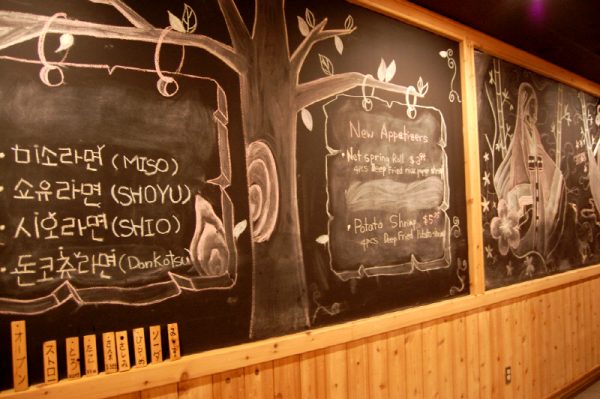 · 미소라면 (MISO)
· 쇼유라면 (SHOYU)
· 시오라면 (SHIO)
· 돈코츄라면 (Donkotsu
New Appetizers
· Net spring Roll $3.95
4pcs. Deep Fried rice paper
· Potato Shrimp $5.95
4pcs. Deep Fried Potato
オープン
ストロー